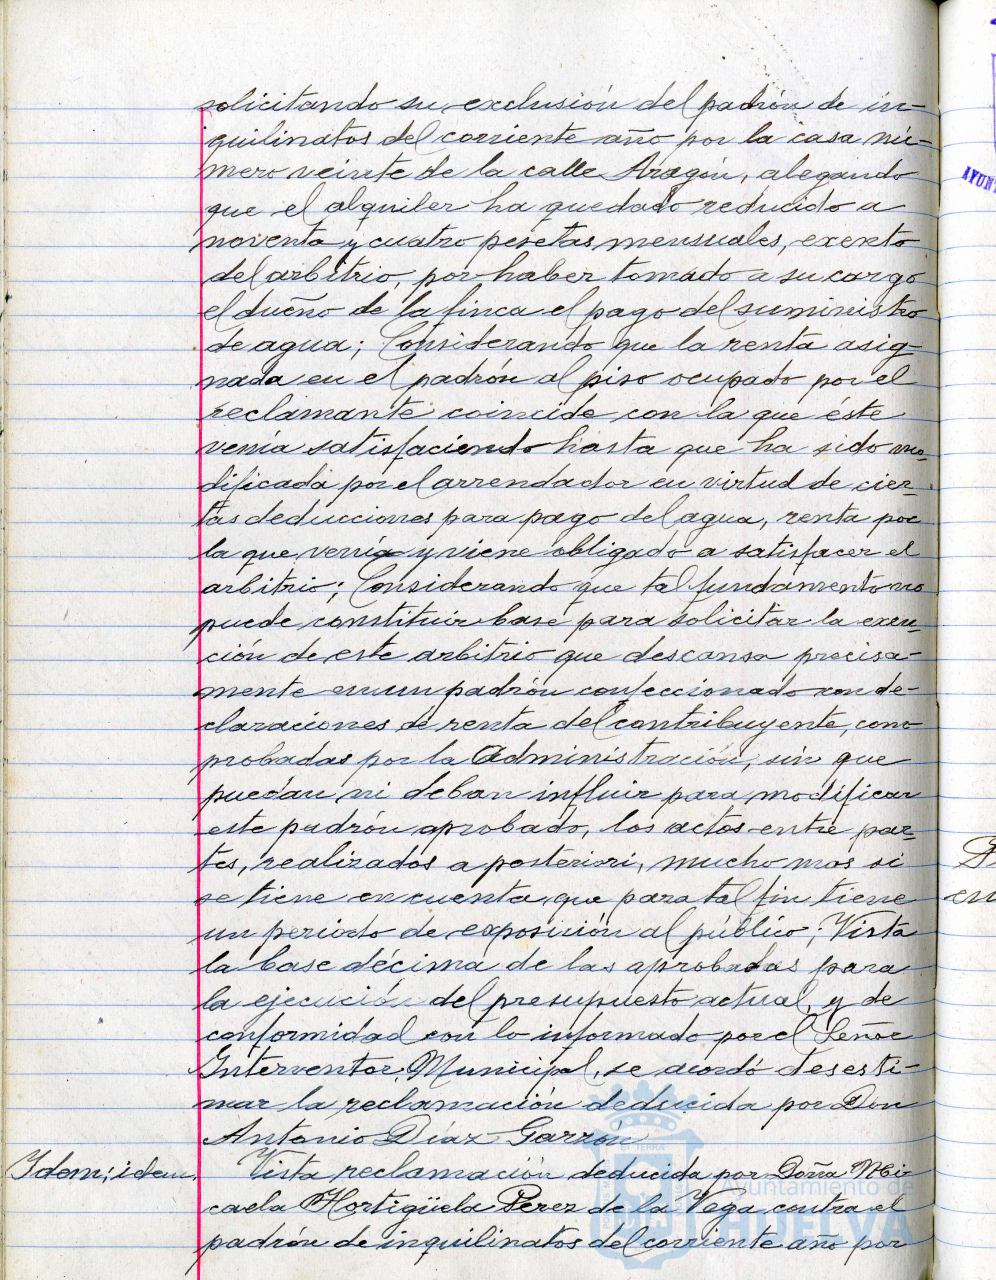 solicitando su exclusión del padrón de in-
quilinatos del corriente año por la casa nú-
mero veinte de la calle Aragón, alegando
que el alquiler ha quedado reducido a
noventa y cuatro pesetas mensuales, exento
del arbitrio, por haber tomado a su cargo
el dueño de la finca el pago del suministro
de agua; Considerando que la renta asig-
nada en el padrón al piso ocupado por el
reclamante coincide con la que éste
venía satisfaciendo hasta que ha sido mo-
dificada por el arrendador en virtud de cier-
tas deducciones para pago del agua, renta por
la que venía y viene obligado a satisfacer el
arbitrio; Considerando que tal fundamento no
puede constituir base para solicitar la exen-
ción de este arbitrio que descansa precisa-
mente en un padrón confeccionado con de-
claraciones de renta del contribuyente, com-
probadas por la Administración, sin que
puedan ni deban influir para modificar
este padrón aprobado, los actos entre par-
tes, realizados a posteriori, mucho mas si
se tiene en cuenta que para tal fin tiene
un periodo de exposición al público; Vista
la base décima de las aprobadas para
la ejecución del presupuesto actual, y de
conformidad con lo informado por el Señor
Interventor Municipal, se acordó desesti-
mar la reclamación deducida por Don
Antonio Díaz Garzón
Idem; idem.
Vista reclamación deducida por Doña Mi-
caela Hortigüela Pérez de la Vega contra el
padrón de inquilinatos del corriente año por
Ayuntamiento de
HUELVA
AYUN
en